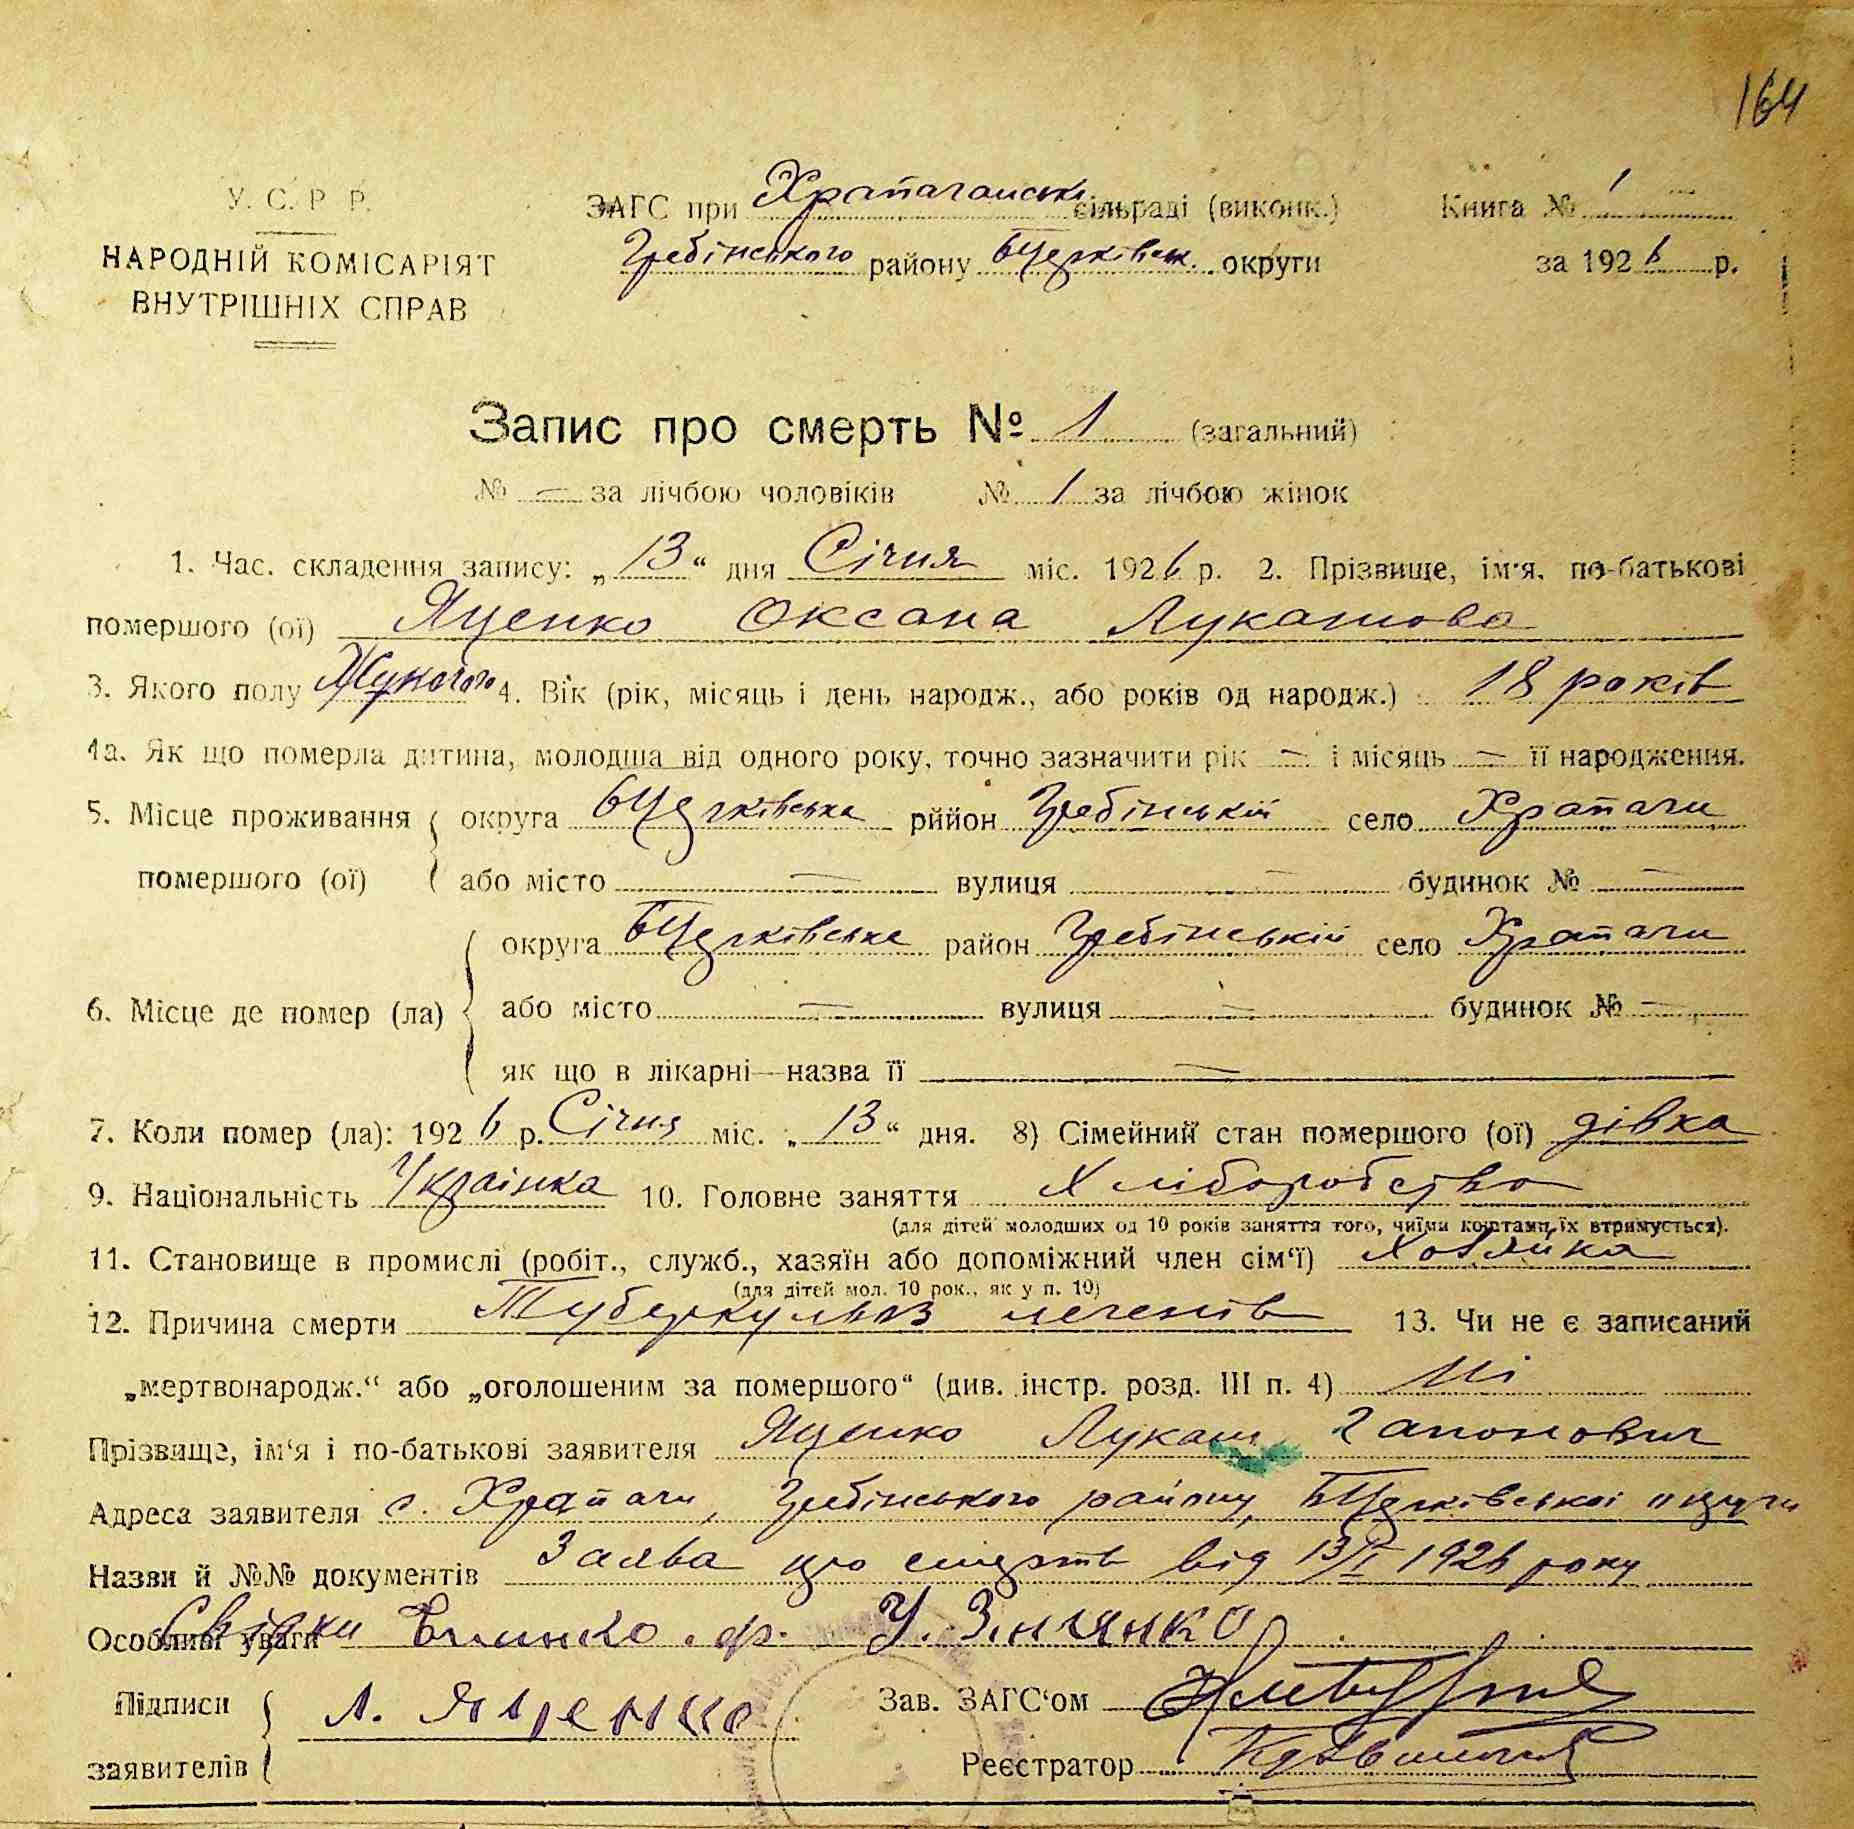 164
У. С. Р. Р.
НАРОДНІЙ КОМІСАРІЯТ
ВНУТРІШНІХ СПРАВ
ЗАГС при Храпачанські сільраді (виконк.) Книга № 1
Гребінського району БЦерківськ. округи за 1926 р.
Запис про смерть № 1 (загальний)
№ — за лічбою чоловіків № 1 за лічбою жінок
1. Час. складення запису: „13“ дня Січня міс. 1926 р. 2. Прізвище, ім'я, по-батькові
помершого (ої) Яценко Оксана Лукашова
3. Якого полу 4. Вік (рік, місяць і день народж., або років од народж.) 18 років
4а. Як що померла дитина, молодша від одного року, точно зазначити рік — і місяць — її народження.
5. Місце проживання округа БЦерківська рййон Гребінській село Храпачи
помершого (ої) або місто — вулиця — будинок № —
округа БЦерківська район Гребінській село Храпачи
6. Місце де помер (ла) або місто — вулиця — будинок № —
як що в лікарні—назва її —
7. Коли помер (ла): 1926 р. Січня міс. „13“ дня. 8) Сімейний стан помершого (ої) дівка
9. Національність Українка 10. Головне заняття Хліборобство
(для дітей молодших од 10 років заняття того, чиїми коштами їх втримується).
11. Становище в промислі (робіт., служб., хазяїн або допоміжний член сім'ї) Хозяйка
(для дітей мол. 10 рок., як у п. 10)
12. Причина смерти Туберкульоз легенів 13. Чи не є записаний
„мертвонародж.“ або „оголошеним за помершого“ (див. інстр. розд. III п. 4) Ні
Прізвище, ім'я і по-батькові заявителя Яценко Лукаш Гапонович
Адреса заявителя с. Храпачи, Гребінського району, БЦерківської округи
Назви й №№ документів Заява про смерть від 13/I 1926 року
Особливі уваги Свідки ф. У. Зінченко
Підписи Л. Яценко Зав. ЗАГС'ом
заявителів Реєстратор